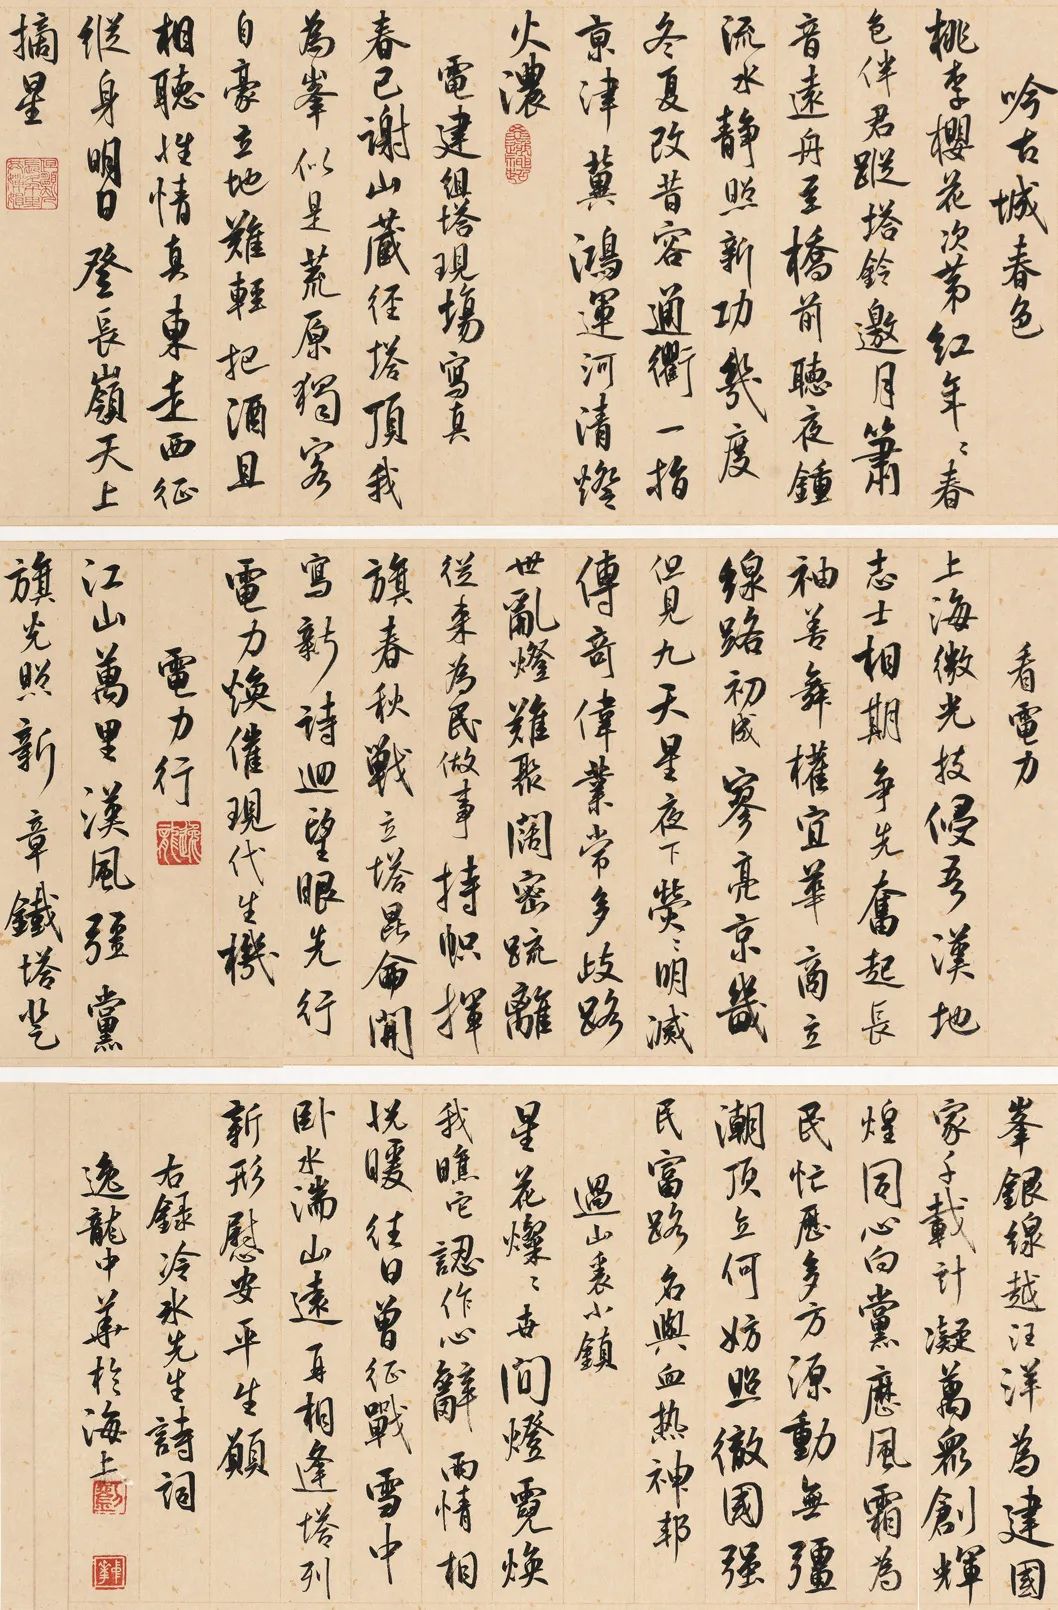 吟古城春色
桃李櫻花次第红年〻春
色伴君蹤塔鈴邀月簫
音遠舟至橋前聽夜鍾
流水靜照新功幾度
冬夏改昔容通衢一指
京津冀鴻運河清燈
火濃
電建組塔現場寫真
春已谢山藏径塔頂我
為峯似是荒原獨客
自豪立地難輕把酒且
相聽性情真東走西征
縱身明日登長嶺天上
摘星
看電力
上海微光技侵吾漢地
志士相期争先奮起長
袖善舞權宜華商立
線路初成寥亮京畿
但見九天星夜下熒〻明滅
傳奇偉業常多歧路
世亂燈難聚阔密疏離
從来為民做事持帜揮
旗春秋戰立塔昆侖開
寫新詩迴望眼先行
電力焕催現代生機
電力行
江山萬里漢風彊黨
旗光照新章鐵塔登
峯銀線越汪洋為建國
家千載計凝萬衆創輝
煌同心向黨歷風霜為
民忙歷多方源動無彊
潮頂立何妨照徹國强
民富路名與血热神邦
過山裏小鎮
星花燦〻世間燈霓焕
我瞧它認作心辭兩情相
悦暖往日曾征戰雪中
卧水湍山遠再相逢塔列
新形慰安平生願
右録冷冰先生詩詞
逸龍中華於海上